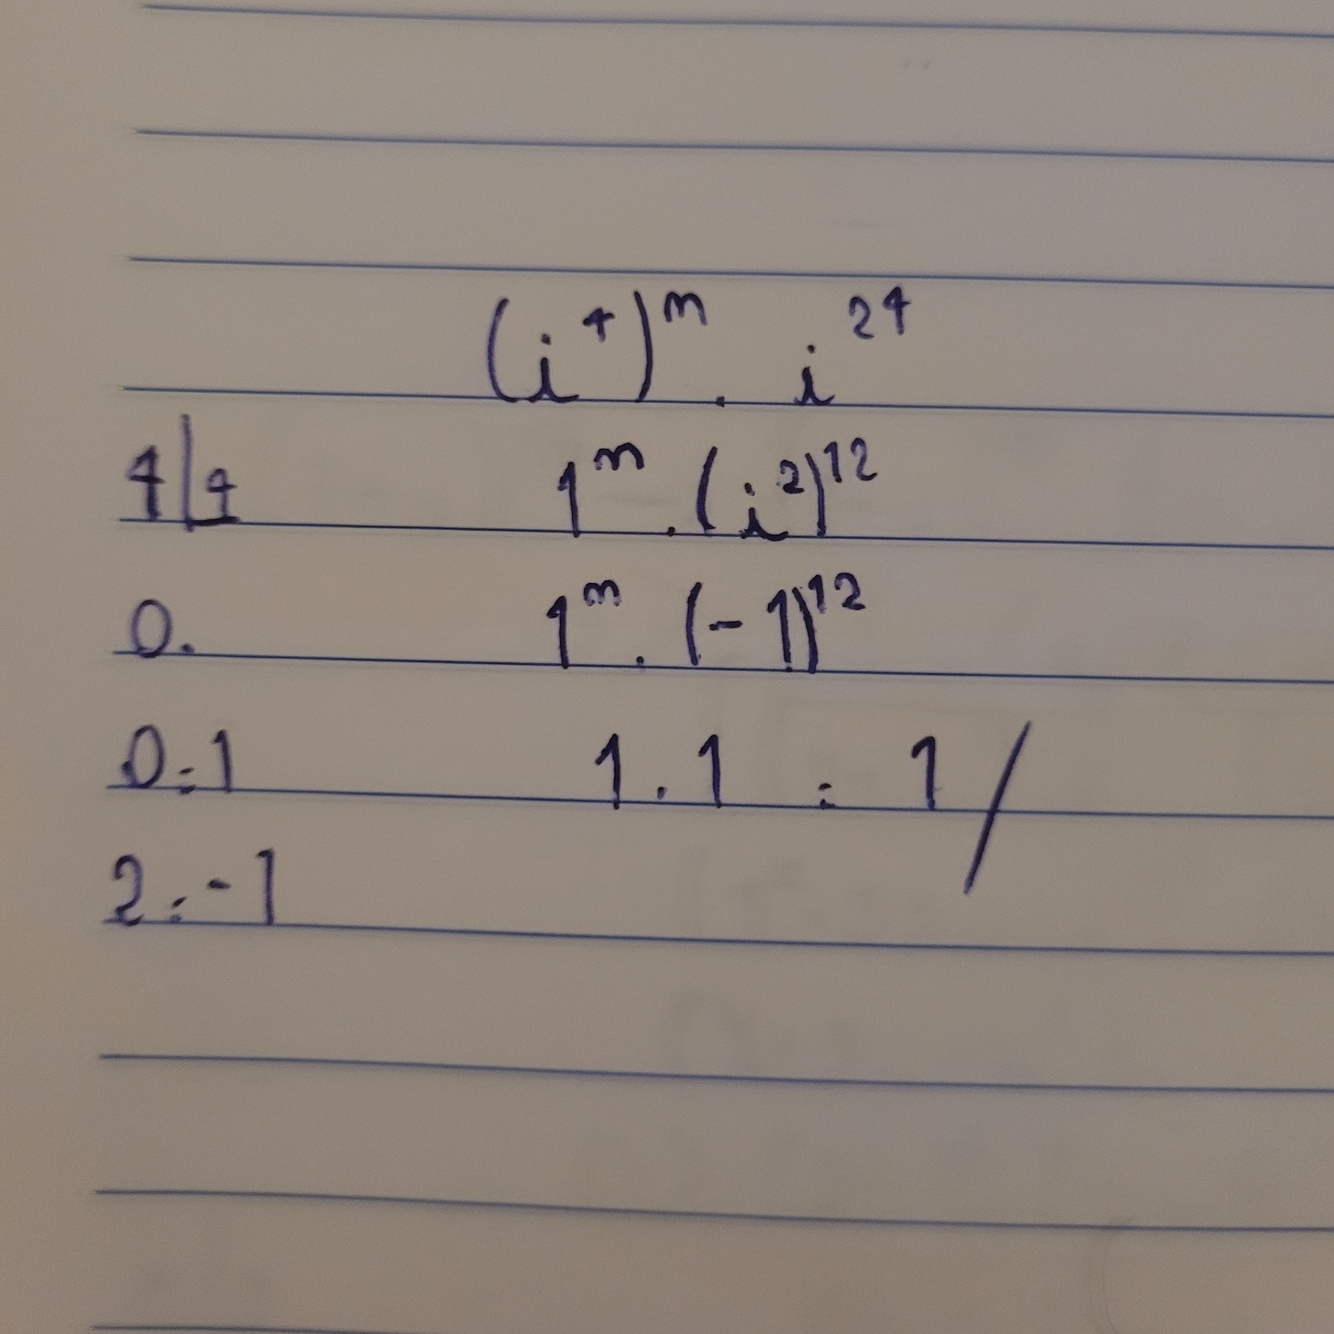 (i⁴)ᵐ . i²⁴
4|4 1ᵐ . (i²)¹²
0. 1ᵐ . (-1)¹²
0=1 1 . 1 = 1/
2=-1